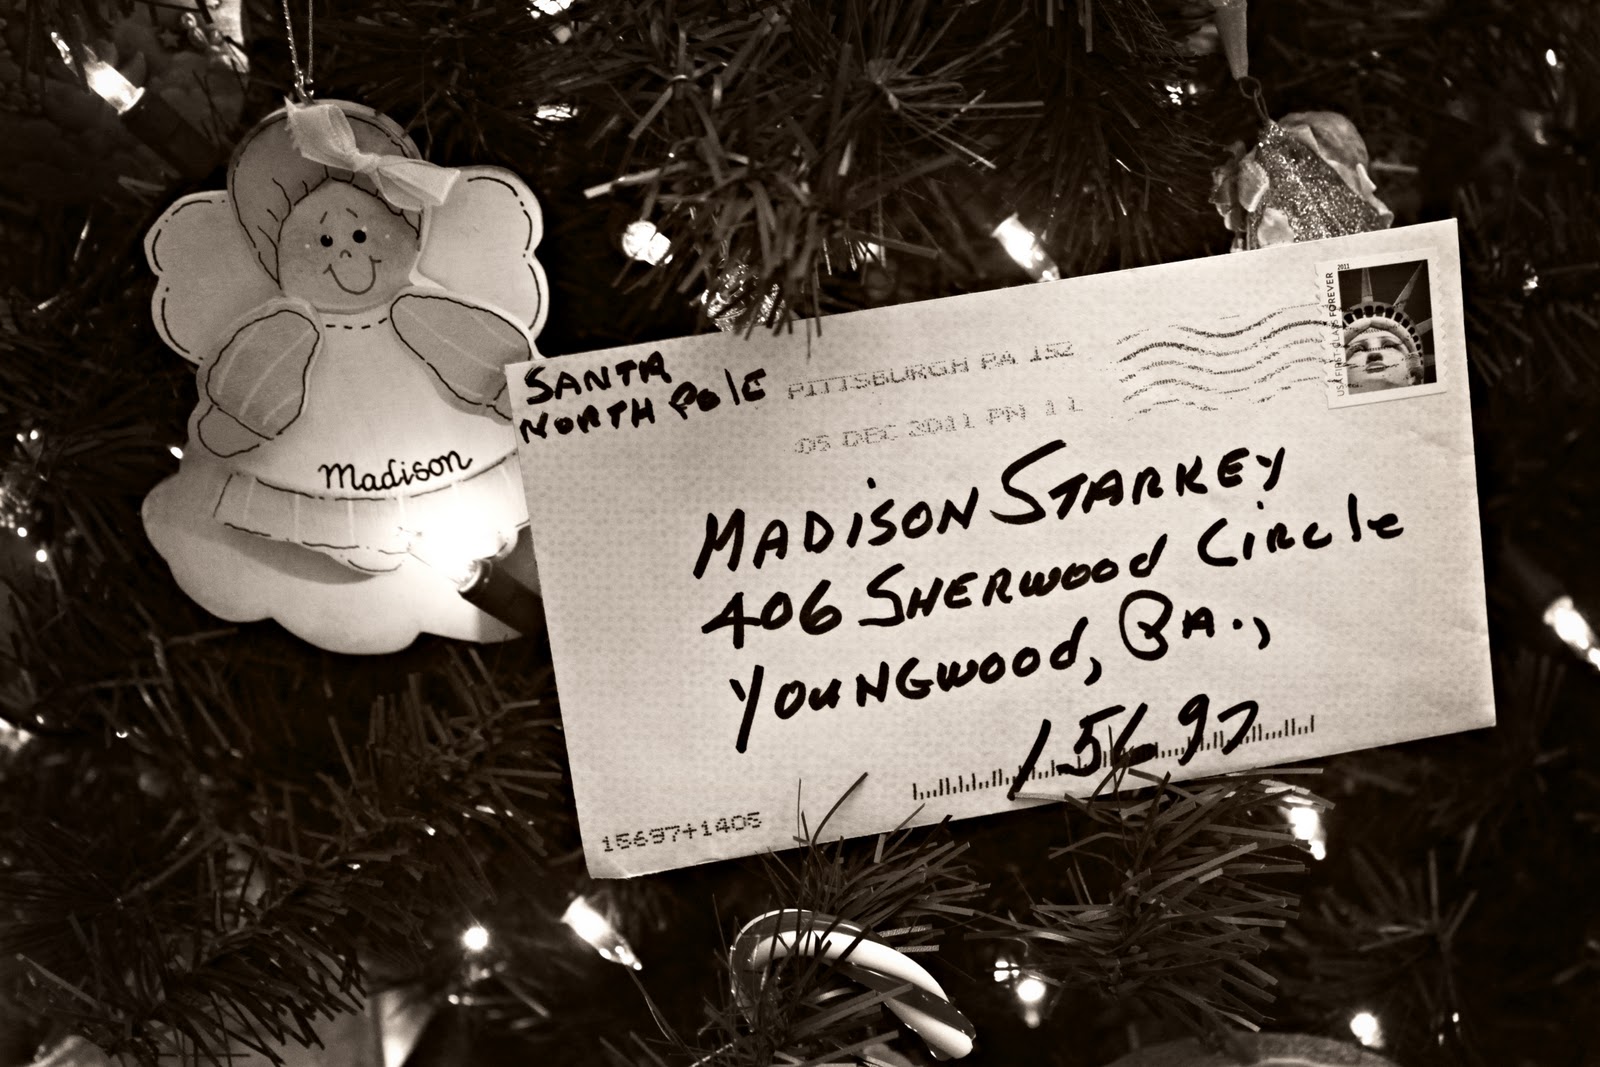 Madison
SANTA
NORTH POLE
PITTSBURGH PA 152
05 DEC 2011 PM 1 L
2011
USA FIRST-CLASS FOREVER
MADISON STARKEY
406 SHERWOOD CIRCLE
YOUNGWOOD, PA.,
15697
15697+1405